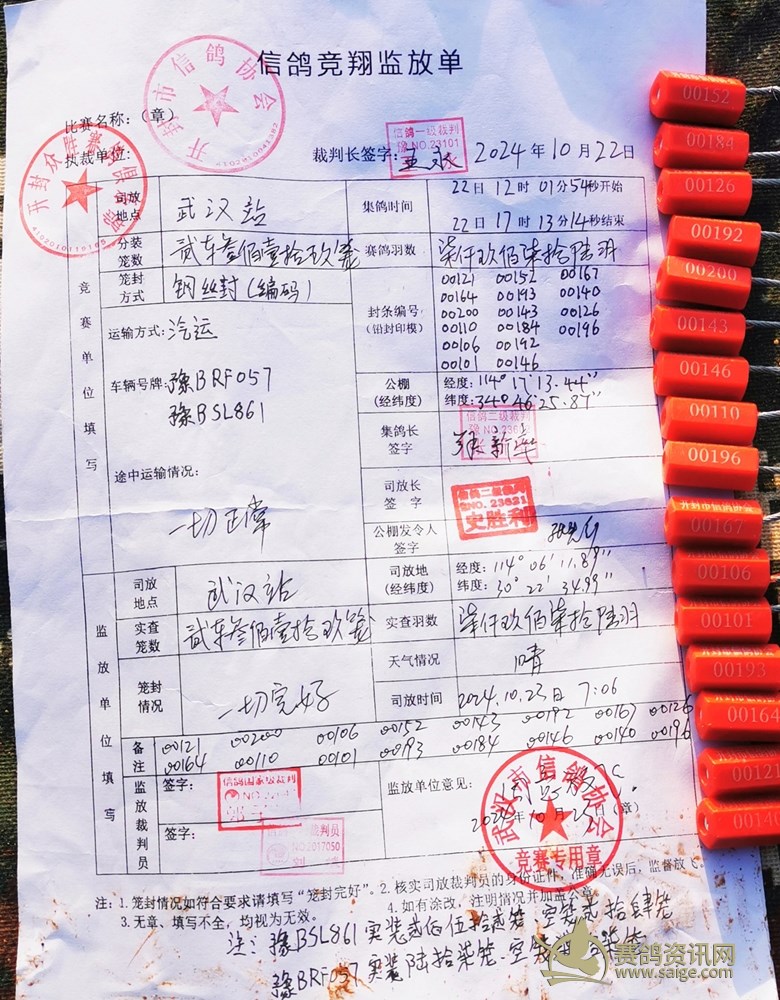 信鸽竞翔监放单
比赛名称：（章）
开封市信鸽协会
执裁单位：
裁判长签字：
信鸽一级裁判
豫NO.23101
2024年10月22日
司放地点 武汉站
集鸽时间 22日12时01分54秒开始
22日17时13分14秒结束
分装笼数 贰车叁佰壹拾玖笼
赛鸽羽数 柒仟玖佰柒拾陆羽
竞赛单位填写
笼封方式 钢丝封（编码）
封条编号（铅封印模）
00121 00152 00167
00164 00193 00140
00200 00143 00126
00110 00184 00196
00106 00192
00101 00146
运输方式：汽运
车辆号牌：豫BRF057
豫BSL861
公棚（经纬度）
经度：114°17'13.44"
纬度：34°46'25.87"
集鸽长签字
信鸽二级裁判
途中运输情况：
一切正常
司放长签字
史胜利
公棚发令人签字
监放单位填写
司放地点 武汉站
司放地（经纬度）
经度：114°06'11.89"
纬度：30°22'34.99"
实查笼数 贰车叁佰壹拾玖笼
实查羽数 柒仟玖佰柒拾陆羽
笼封情况 一切完好
天气情况 晴
司放时间 2024.10.23日 7:06
备注
00121 00200 00106 00152 00143 00192 00167 00126
00164 00110 00101 00193 00184 00146 00140 00196
监放裁判员
签字：
信鸽国家级裁判
签字：
裁判员
NO.2017050
监放单位意见：
武汉市信鸽协会
竞赛专用章
（章）
注：1.笼封情况如符合要求请填写“笼封完好”。2.核实司放裁判员的身份证件，准确无误后，监督放飞
3.无章、填写不全，均视为无效。 4.如有涂改，注明情况并加盖公章
注：豫BSL861实装贰佰伍拾贰笼.空装贰拾肆笼
豫BRF057实装陆拾柒笼.
赛鸽资讯网
www.saige.com
00152
00184
00126
00192
00200
00143
00146
00110
00196
开封市信鸽协会
00167
00106
00101
00193
00164
00121
00140